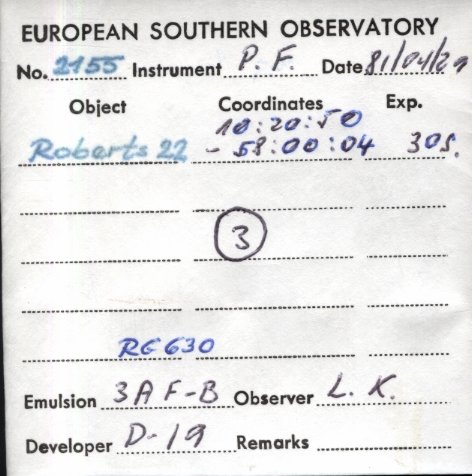 EUROPEAN SOUTHERN OBSERVATORY
No. 2155 Instrument P. F. Date 81/04/29
Object Coordinates Exp.
10:20:50
Roberts 22 - 58:00:04 30s.
3
RG 630
Emulsion 3A F-B Observer L. K.
Developer D-19 Remarks